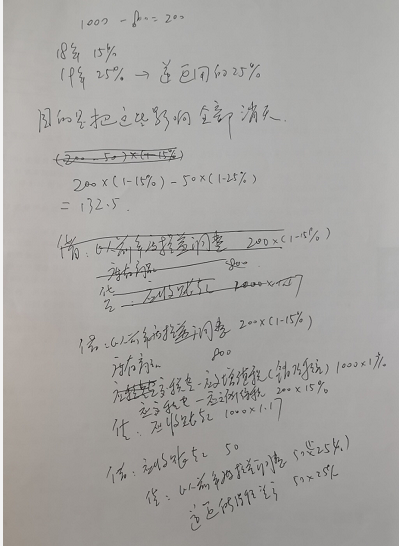 1000 - 800 = 200
18年 15%
19年 25% → 递延用的25%
目的是把这些影响全部消灭.
(200 - 50)×(1-15%)
200×(1-15%) - 50×(1-25%)
= 132.5.
借: 以前年度损益调整 200×(1-15%)
库存商品 800
贷: 应收账款 1000×1.17
借: 以前年度损益调整 200×(1-15%)
库存商品 800
应交税费-应交增值税(销项税额) 1000×17%
应交税费-应交所得税 200×15%
贷: 应收账款 1000×1.17
借: 应收账款 50
贷: 以前年度损益调整 50×25%)
递延所得税资产 50×25%